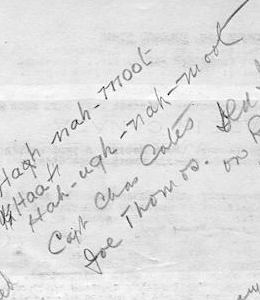 Haqh nah-moot
Haat
Hah-ugh-nah-moot
Capt Chas Cates
Joe Thomas. on